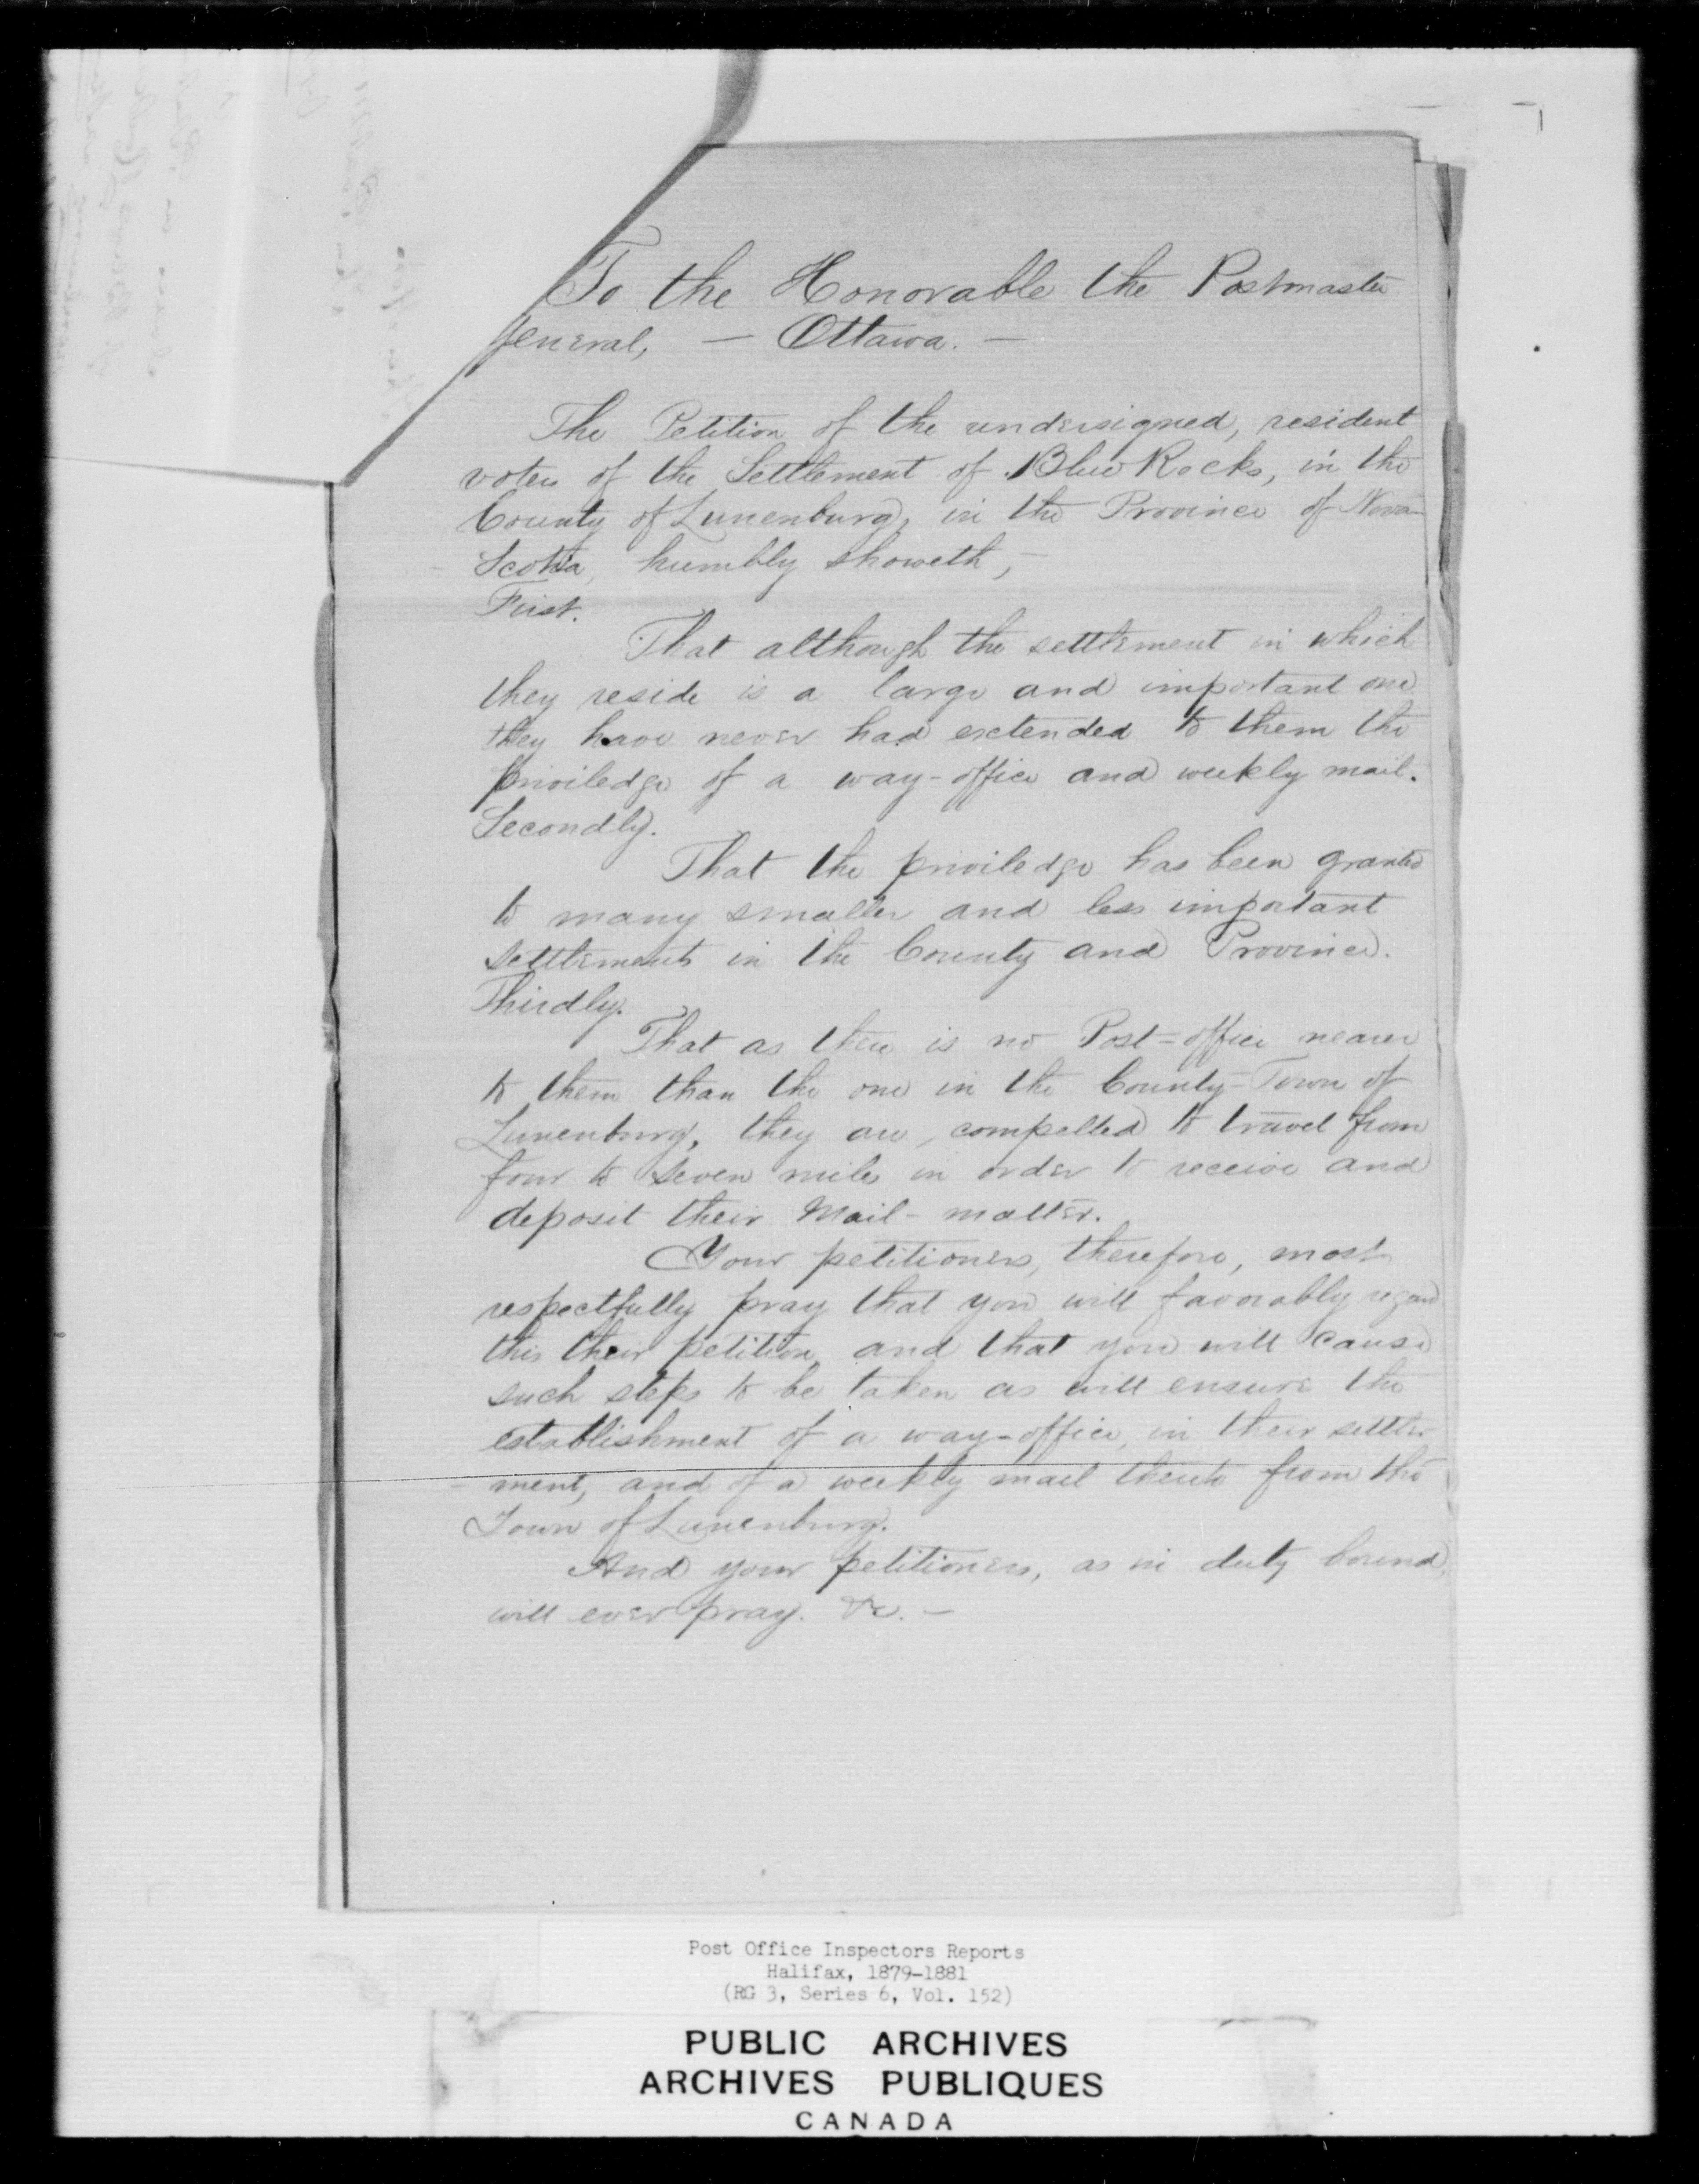 To the Honorable the Postmaster
General, — Ottawa. —
The Petition of the undersigned, resident
voters of the Settlement of Blue Rocks, in the
County of Lunenburg, in the Province of Nova
Scotia, humbly showeth, —
First.
That although the settlement in which
they reside is a large and important one
they have never had extended to them the
priviledge of a way-office and weekly mail.
Secondly.
That the priviledge has been granted
to many smaller and less important
settlements in the County and Province.
Thirdly.
That as there is no Post=office nearer
to them than the one in the County-Town of
Lunenburg, they are, compelled to travel from
four to seven miles in order to receive and
deposit their Mail-matter.
Your petitioners, therefore, most
respectfully pray that you will favorably regard
this their petition, and that you will cause
such steps to be taken as will ensure the
establishment of a way-office, in their settle-
-ment, and of a weekly mail thereto from the
Town of Lunenburg.
And your petitioners, as in duty bound,
will ever pray. &c. —
Post Office Inspectors Reports
Halifax, 1879-1881
(RG 3, Series 6, Vol. 152)
PUBLIC ARCHIVES
ARCHIVES PUBLIQUES
CANADA